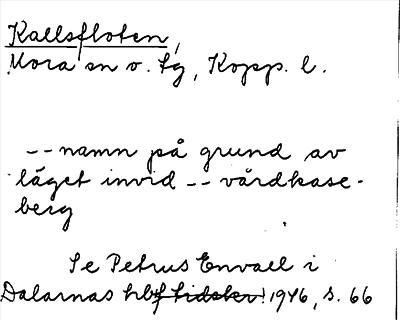 Kallsfloten,
Mora sn o. tg, Kopp. l.
-- namn på grund av
läget invid -- vårdkase-
berg
Se Petrus Envall i
Dalarnas hbf 1946, s. 66